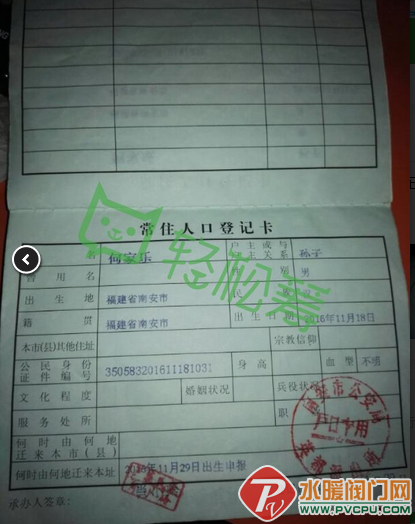 常住人口登记卡
名 何家乐 户主或与户主关系 孙子
曾用名 别 男
出生地 福建省南安市
籍贯 福建省南安市 出生日期 2016年11月18日
本市(县)其他住址 宗教信仰
公民身份证件编号 350583201611181031 身高 血型 不明
文化程度 婚姻状况 兵役状况
服务处所 职
何时由何地迁来本市(县)
何时由何地迁来本址 2016年11月29日出生申报
承办人签章:
轻松筹
户口专用
水暖阀门网
www.PVCPU.com